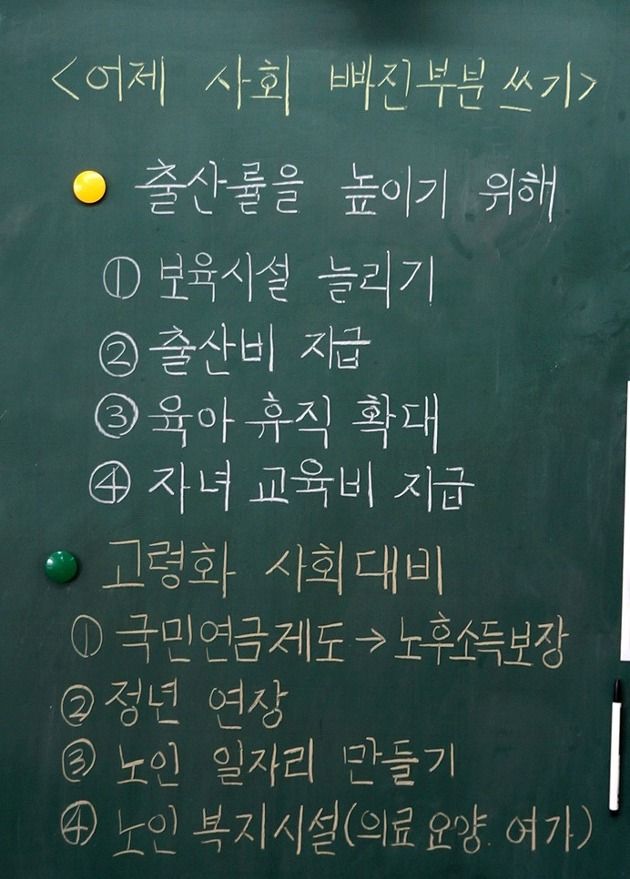 <어제 사회 빠진부분 쓰기>
출산률을 높이기 위해
① 보육시설 늘리기
② 출산비 지급
③ 육아 휴직 확대
④ 자녀 교육비 지급
고령화 사회대비
① 국민연금제도 → 노후소득보장
② 정년 연장
③ 노인 일자리 만들기
④ 노인 복지시설(의료 요양 여가)